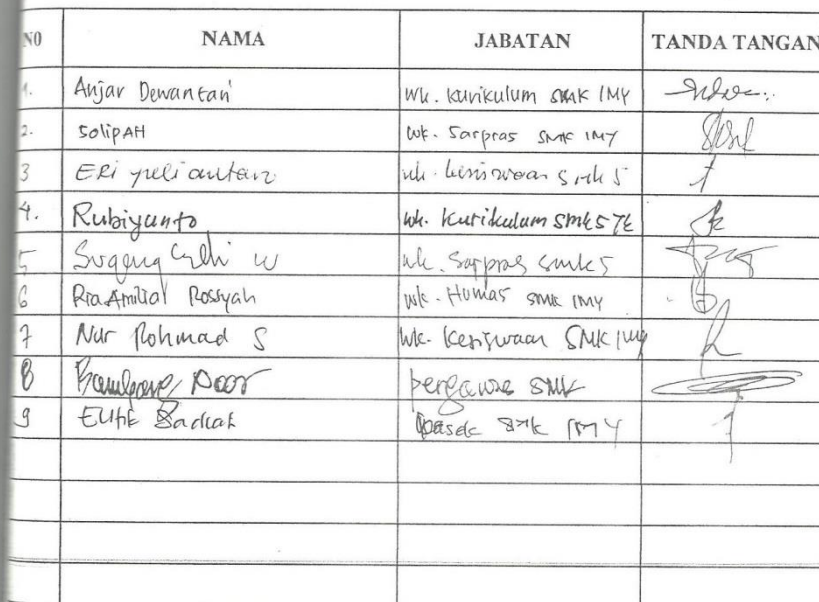 NO NAMA JABATAN TANDA TANGAN
1. Anjar Dewantari Wk. Kurikulum SMK IMY
2. SolipAH Wk. Sarpras SMK IMY
3 ERi yuliantari wk. kesiswaan smk 5
4. Rubiyanto Wk. Kurikulum SMK 5 TE
5 Sugeng W wk. Sarpras smk 5
6 Ria Amilial Rossyah Wk. Humas SMK IMY
7 Nur Rohmad S Wk. Kesiswaan SMK IMY
8 Bambang pengawas SMK
9 Elitik SMK IMY